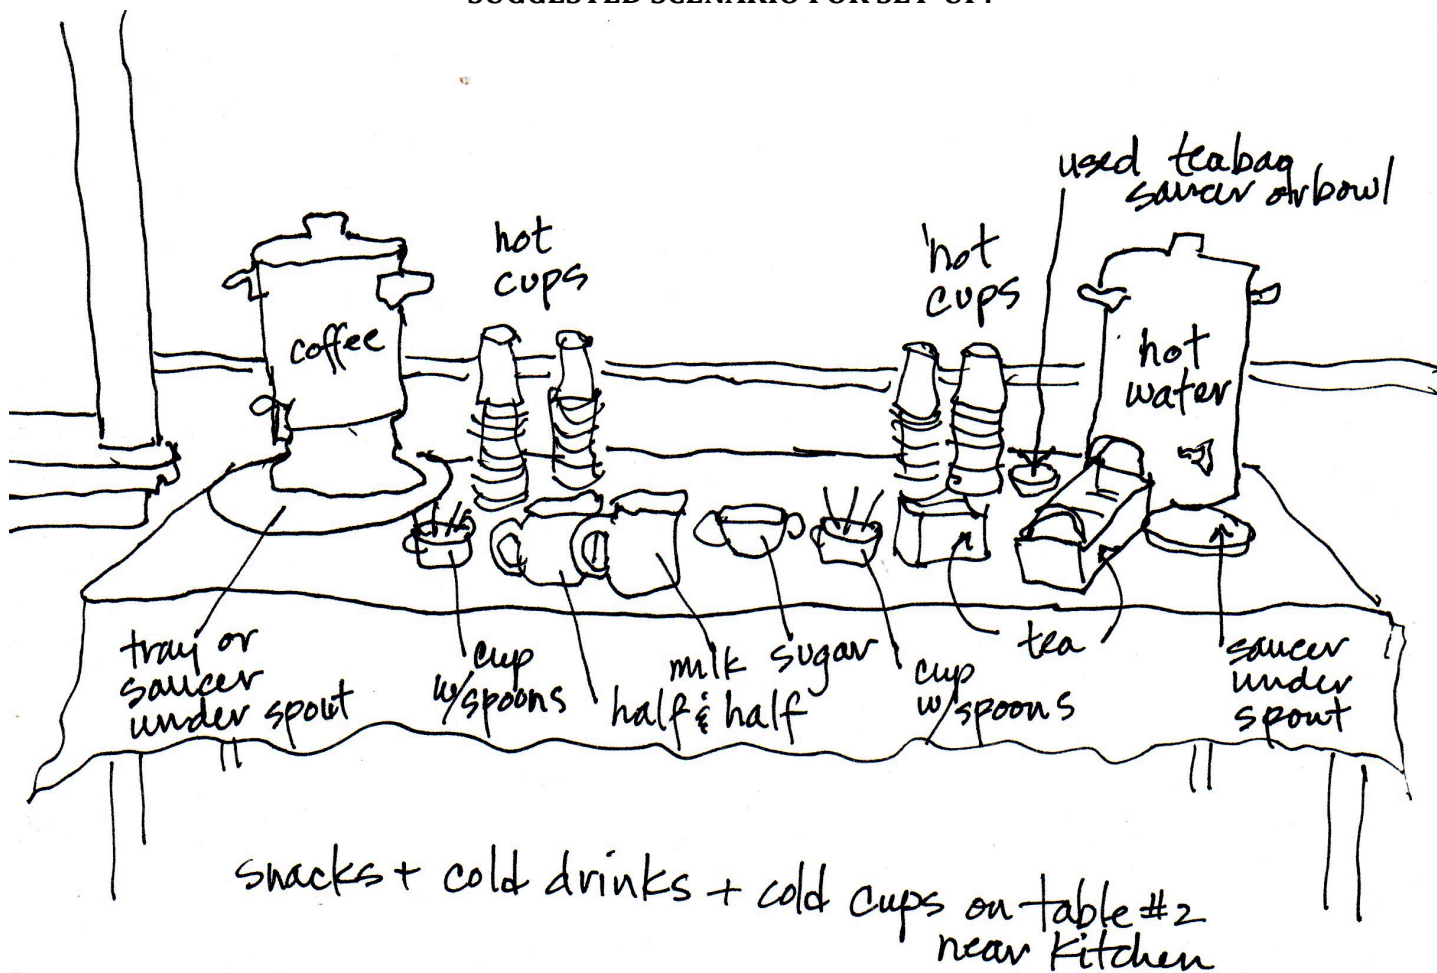 SUGGESTED SCENARIO FOR SET-UP:
used teabag
saucer or bowl
hot
cups
hot
cups
coffee
hot
water
tray or
saucer
under spout
cup
w/spoons
milk
half & half
sugar
cup
w/spoons
tea
saucer
under
spout
snacks + cold drinks + cold cups on table #2
near Kitchen